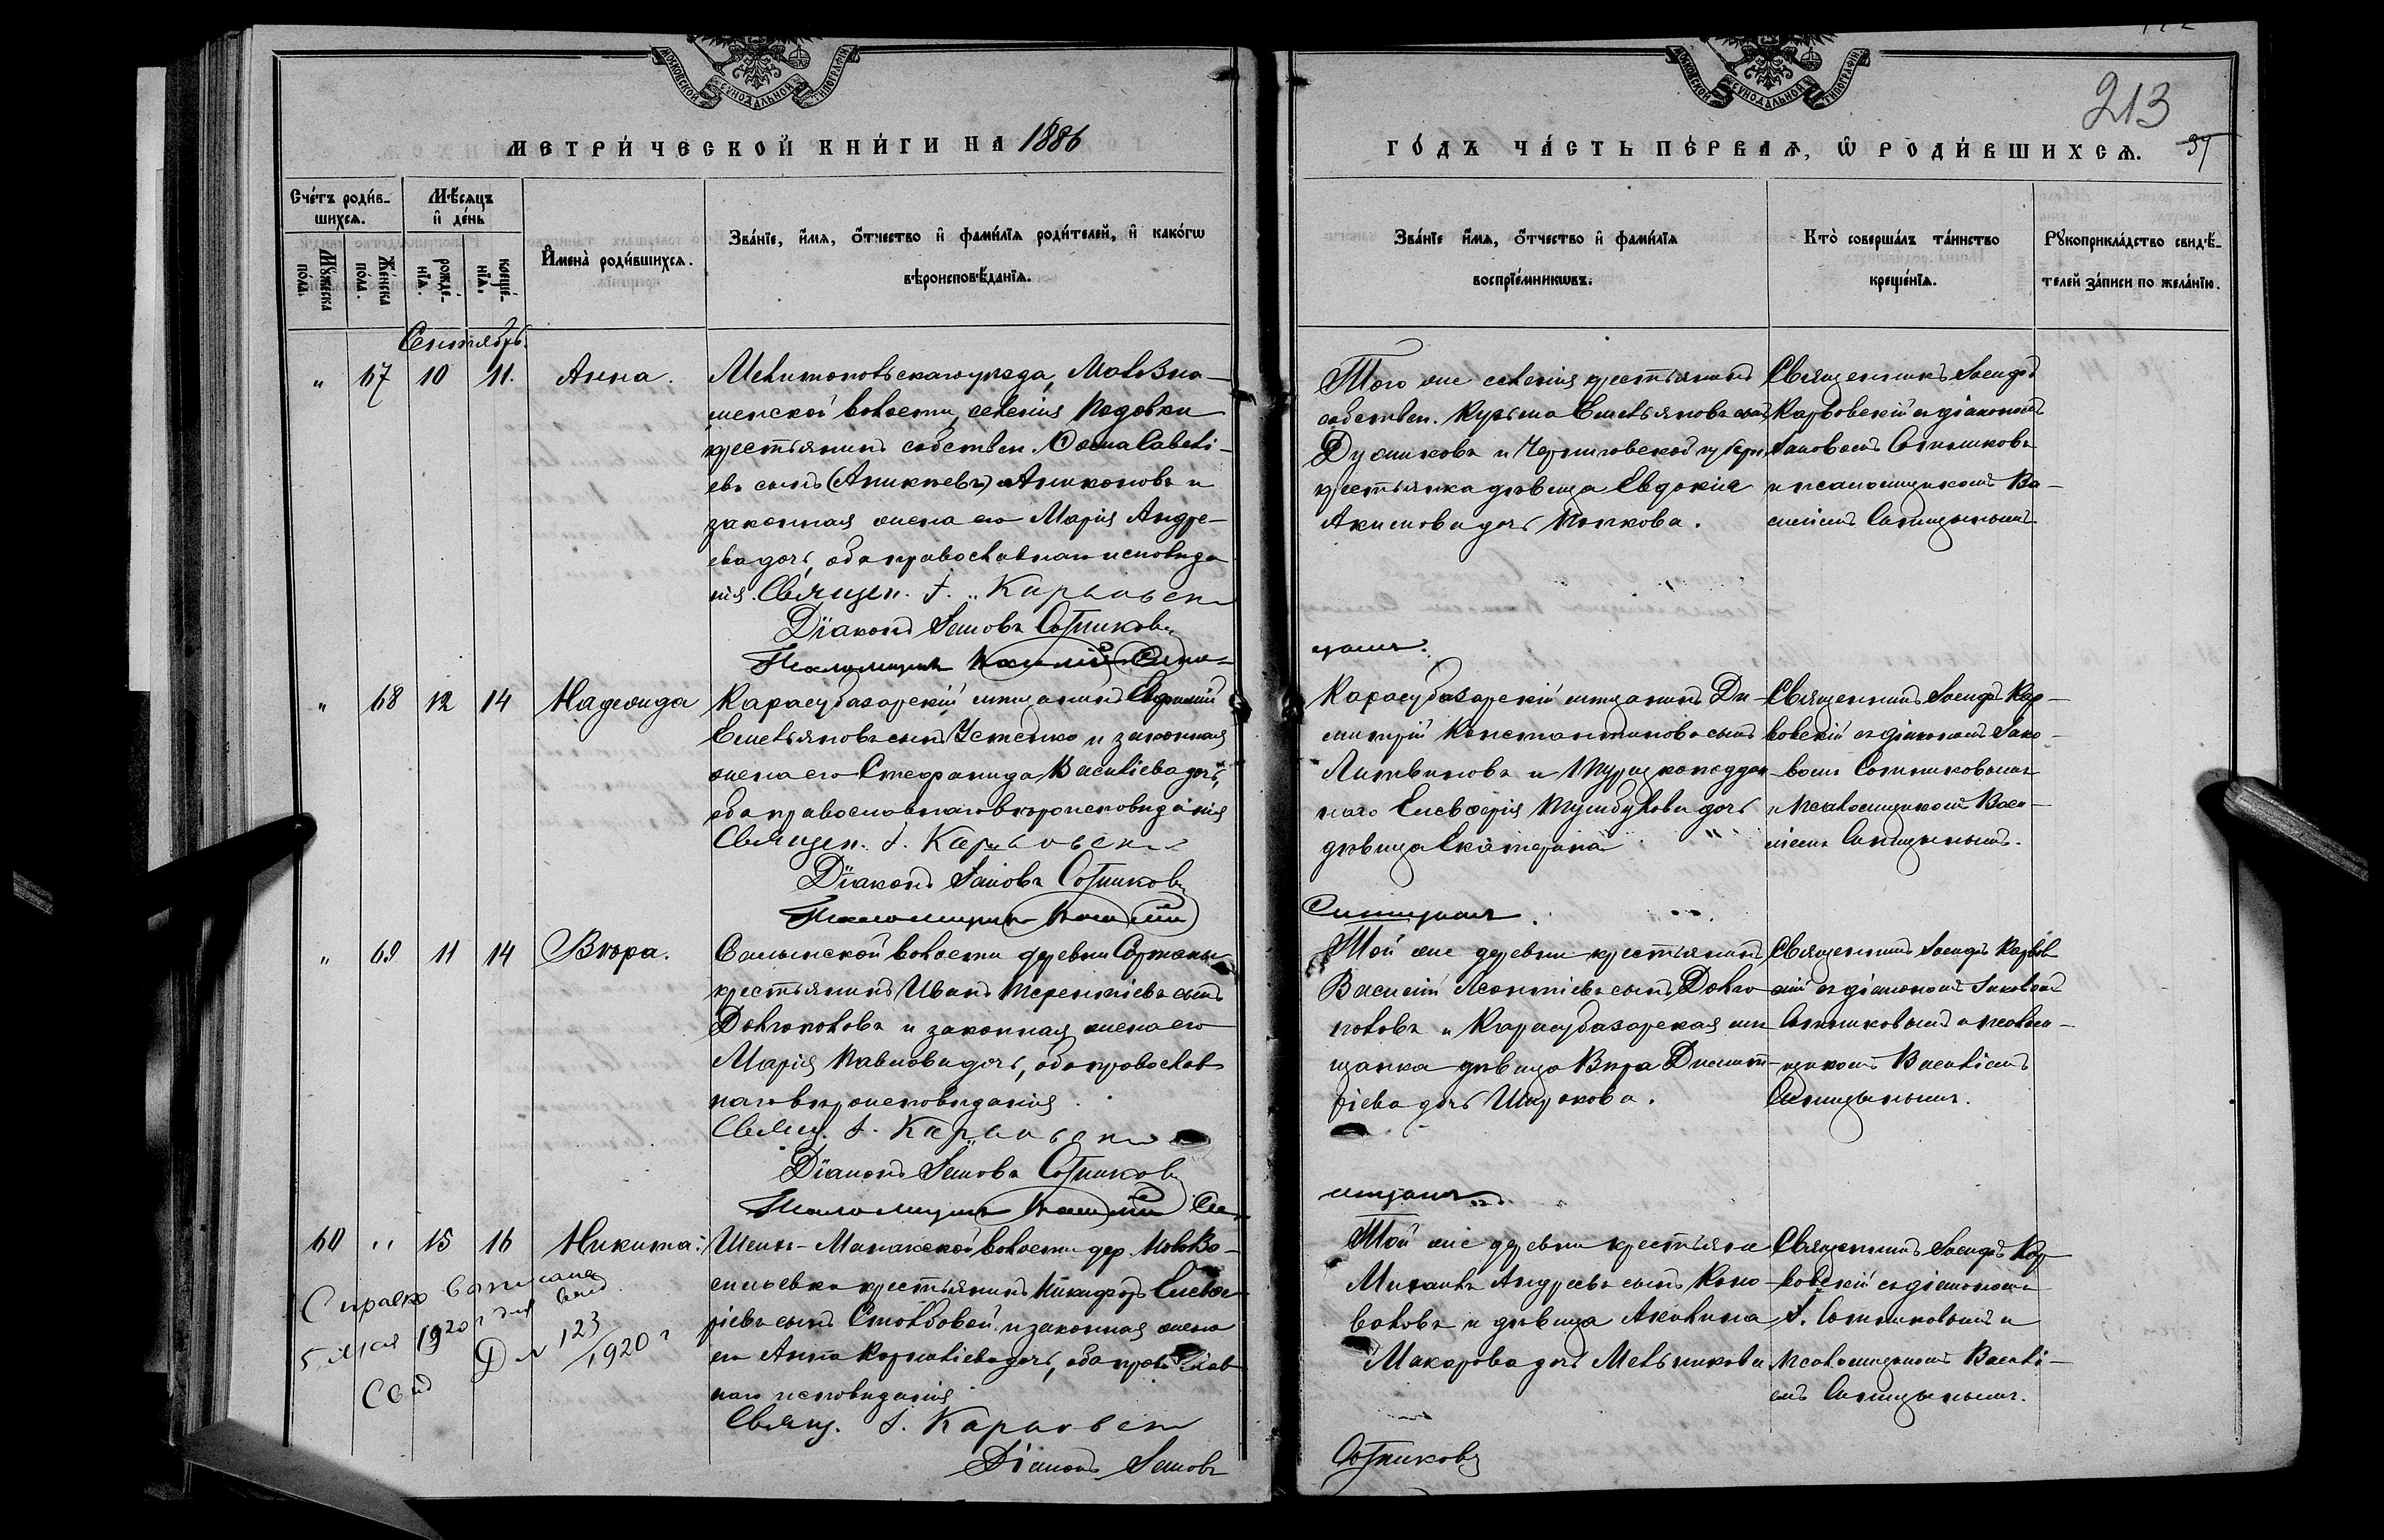 МОСКОВСКОЙ СУНОДАЛЬНОЙ ТИПОГРАФІИ
МОСКОВСКОЙ СУНОДАЛЬНОЙ ТИПОГРАФІИ
213
МЕТРИ́ЧЕСКОЙ КНИ́ГИ НА 1886
ГО́ДЪ ЧА́СТЬ ПЕ́РВАЯ, Ѡ РОДИ́ВШИХСЯ. 37
Сче́тъ роди́в-
шихся.
Мѣ́сяцъ
и҆ де́нь
Му́жеска
по́ла.
Же́нска
по́ла.
рожде́-
нїя.
креще́-
нїя.
И҆мена̀ роди́вшихся.
Зва́нїе, и҆́мя, ѻ҆́тчество и҆ фами́лїя роди́телей, и҆ како́гѡ
вѣроисповѣ́данїя.
Зва́нїе и҆́мя, ѻ҆́тчество и҆ фами́лїя
воспрїе́мникѡвъ.
Кто̀ соверша́лъ та́инство
креще́нїя.
Рꙋкоприкла́дство свидѣ́-
телей за́писи по жела́нїю.
Сентябрь.
" 67 10 11. Анна.
Мелитопольскаго уезда, МалоЗна-
менской волости, селенія Водовки
крестьянинъ собствен. Савелі-
евъ сынъ (Аникѣевъ) Аниконовъ и
законная жена его Марія Андре-
ева дочь, оба православнаго исповѣда
нія. Священ. І. Карповск
Діаконъ Іаковъ Сотниковъ
Псаломщикъ Василій Сини-
Того же селенія крестьянинъ
собствен. Кузьма Емельяновъ сынъ
Духниковъ и Черниговской губерн
крестьянка дѣвица Евдокія
Акимова дочь Попкова.
цынъ.
Священникъ
Карповскій съ діакономъ
Іаковомъ Сотниковъ
и псаломщикомъ Ва-
силіемъ Синицынымъ.
" 68 12 14 Надежда
Карасубазарскій мѣщанинъ Евфимій
Емельяновъ сынъ Устенко и законная
жена его Стефанида Васильева дочь,
оба православнаго вѣроисповѣданія
Священ. І. Карповск
Діаконъ Іаковъ Сотниковъ
Псаломщикъ Василій
Карасубазарскій мѣщанинъ Ди-
митрій Константиновъ сынъ
Литвиновъ и Турецкоподдан-
наго Елевферія дочь
дѣвица Екатерина
Синицынъ.
Священникъ Кар-
повскій съ діакономъ Іако-
вомъ Сотниковымъ
и псаломщикомъ Васи-
ліемъ Синицынымъ.
" 69 11 14 Вѣра.
волости деревни Сартаны
крестьянинъ Иванъ Терентіевъ сынъ
Долгополовъ и законная жена его
Марія Павлова дочь, оба православ
наго вѣроисповѣданія
Свящ. І. Карповск
Діаконъ Іаковъ Сотниковъ
Псаломщикъ Василій Си-
Той же деревни крестьянинъ
Василій Леонтіевъ сынъ Долго
половъ и Карасубазарская мѣ
щанка дѣвица Вѣра Димит-
ріева дочь Широкова.
ницынъ
Священникъ Карпов
скій съ діакономъ Іаковомъ
Сотниковымъ и псалом-
щикомъ Василіемъ
Синицынымъ.
60 " 15 16 Никита.
волости дер. НовоВа-
сильевка крестьянинъ Никифоръ Елевфе
ріевъ сынъ Столбовой и законная жена
его Анна Корнилієва дочь, оба православ
наго исповѣданія
Свящ. І. Карповск
Діаконъ Іаковъ
Той же деревни крестьяне
Михаилъ Андреевъ сынъ Коно
валовъ и дѣвица Акилина
Макарова дочь Мельникова
Сотниковъ
Священникъ Кар
повскій съ діакономъ
І. Сотниковымъ и
псаломщикомъ Васілі-
емъ Синицынымъ.
Справка
5 1920 г
Д № 123
/1920 г